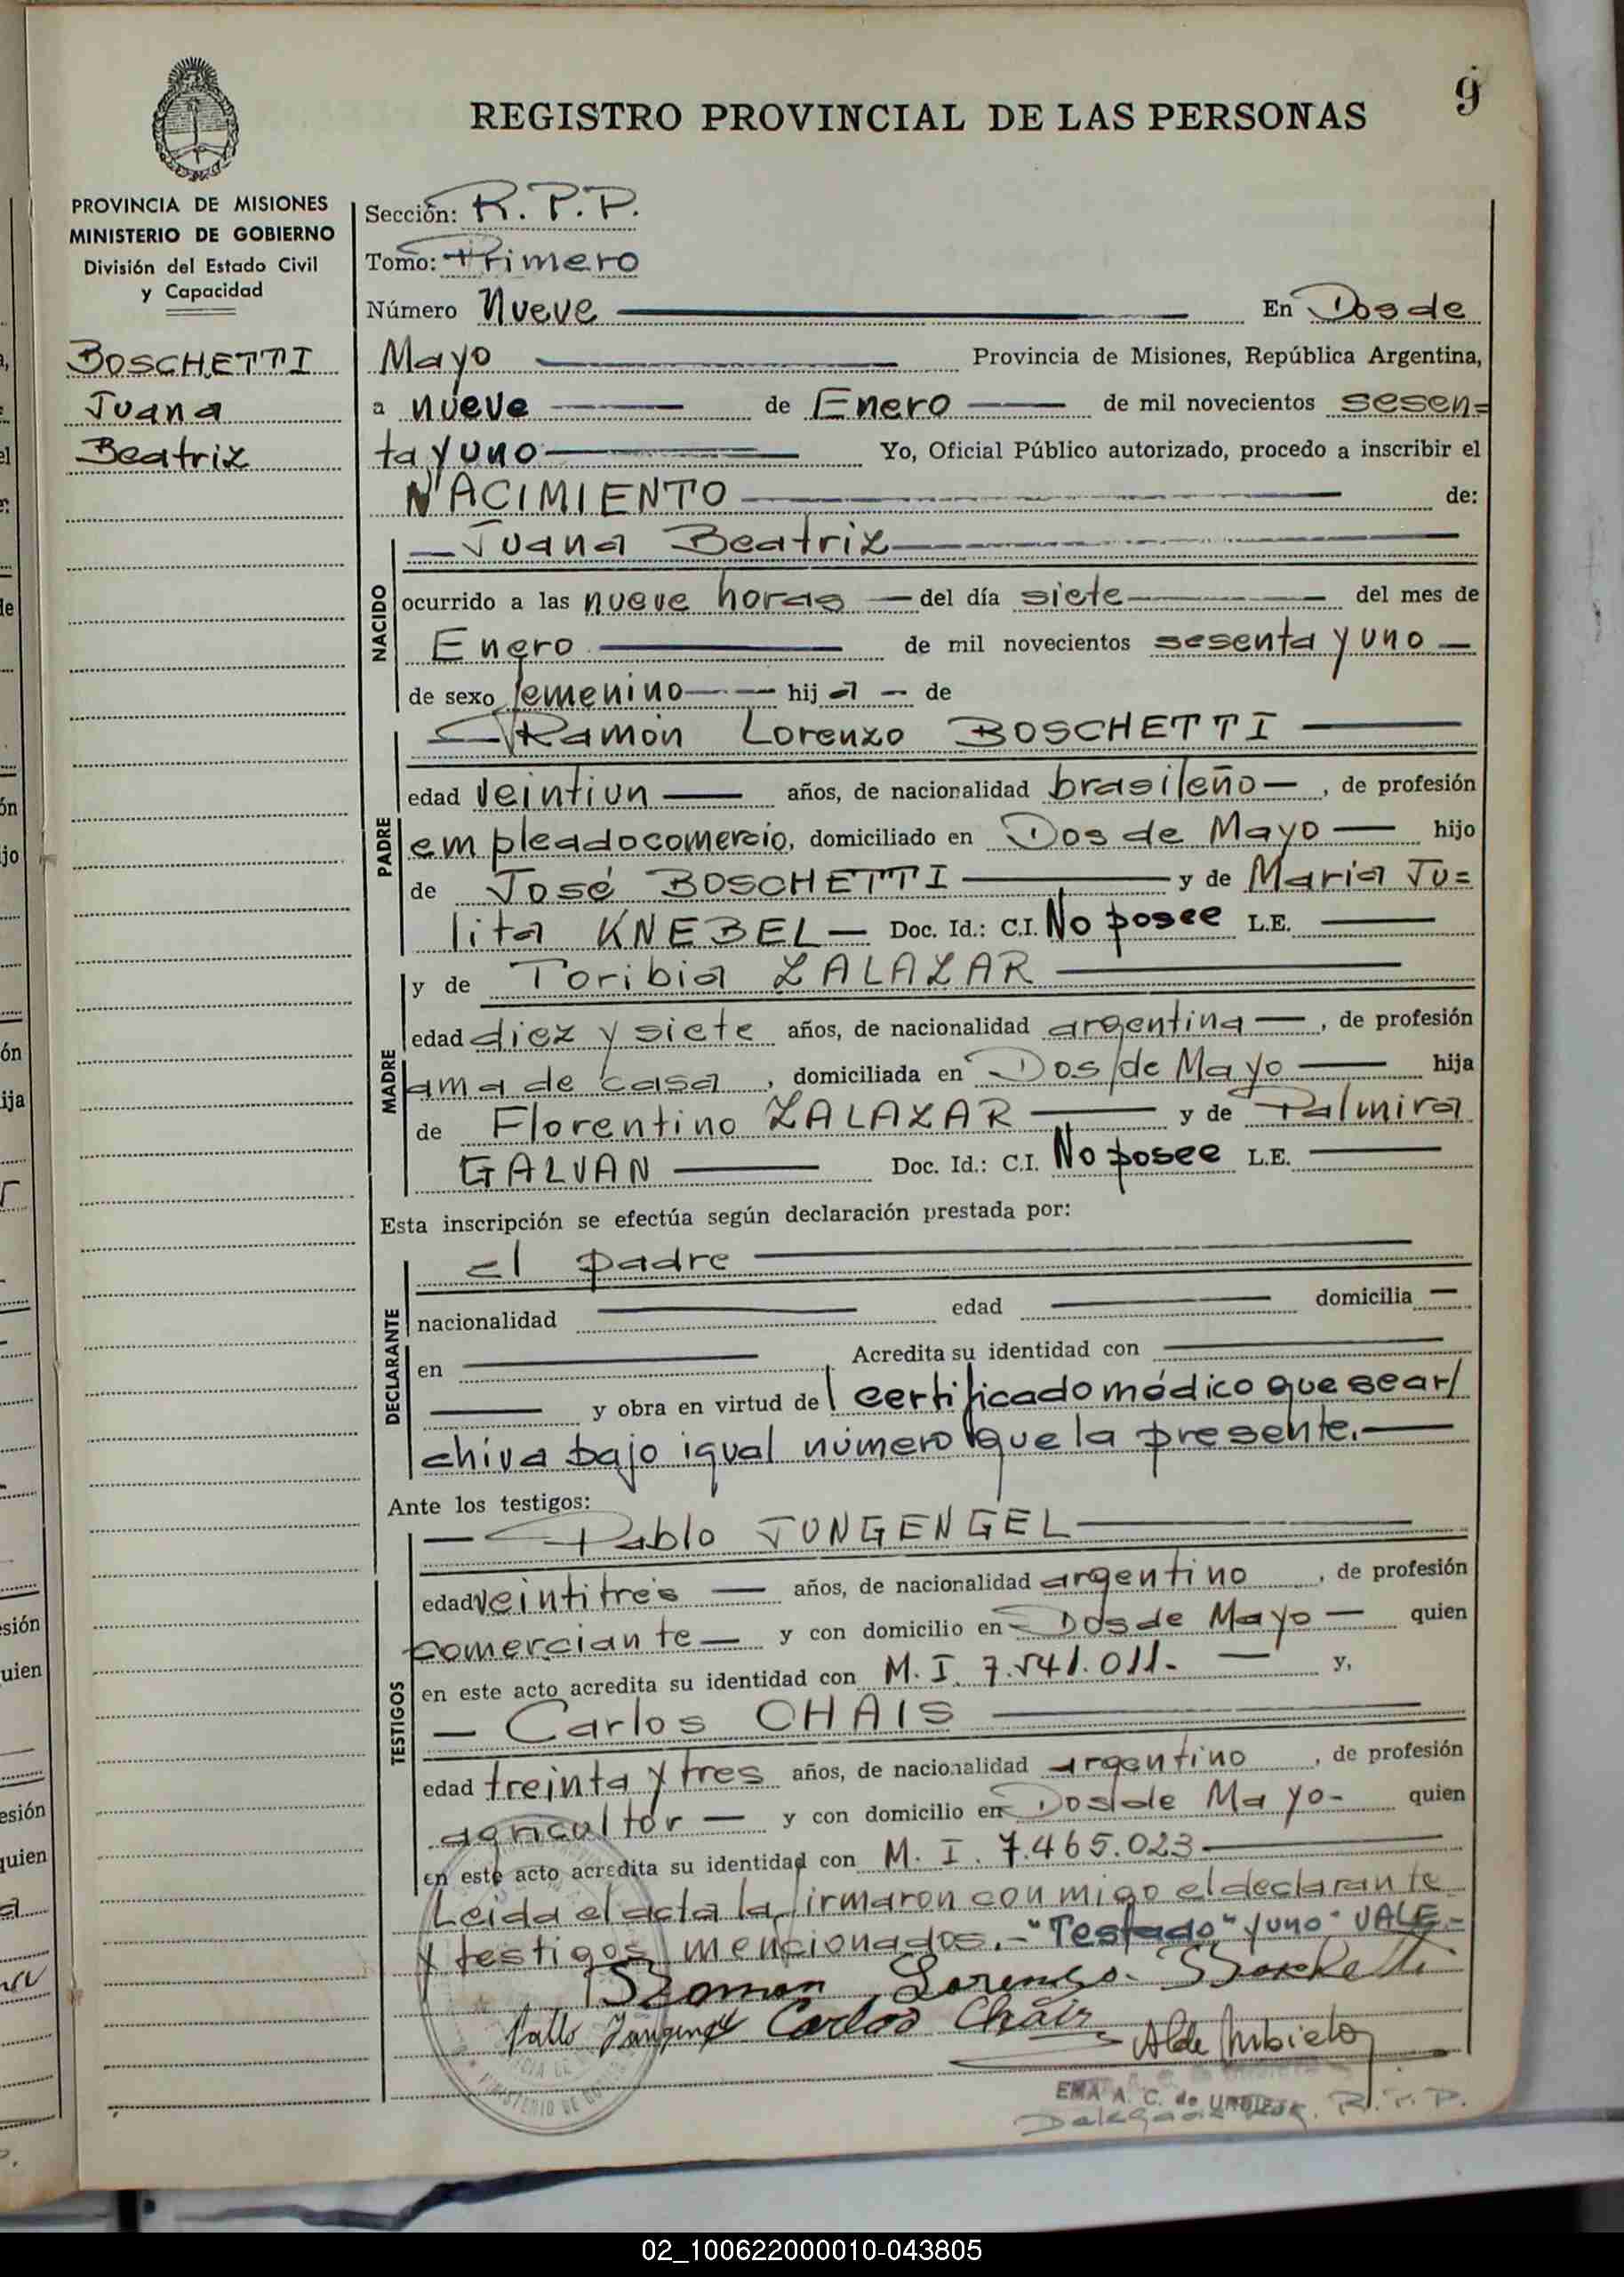 9
REGISTRO PROVINCIAL DE LAS PERSONAS
PROVINCIA DE MISIONES
MINISTERIO DE GOBIERNO
División del Estado Civil
y Capacidad
BOSCHETTI
Juana
Beatriz
Sección: R. P. P.
Tomo: Primero
Número Nueve En Dos de
Mayo Provincia de Misiones, República Argentina,
a nueve de Enero de mil novecientos sesen=
ta y uno Yo, Oficial Público autorizado, procedo a inscribir el
NACIMIENTO de:
Juana Beatriz
NACIDO
ocurrido a las nueve horas del día siete del mes de
Enero de mil novecientos sesenta y uno
de sexo femenino hij a de
Ramón Lorenzo BOSCHETTI
PADRE
edad veintiun años, de nacionalidad brasileño, de profesión
empleado comercio, domiciliado en Dos de Mayo hijo
de José BOSCHETTI y de María Ju=
lita KNEBEL Doc. Id.: C.I. No posee L.E.
y de Toribia ZALAZAR
MADRE
edad diez y siete años, de nacionalidad argentina, de profesión
ama de casa, domiciliada en Dos de Mayo hija
de Florentino ZALAZAR y de Palmira
GALVAN Doc. Id.: C.I. No posee L.E.
Esta inscripción se efectúa según declaración prestada por:
el padre
DECLARANTE
nacionalidad edad domicilia
en Acredita su identidad con
y obra en virtud de l certificado médico que se ar/
chiva bajo igual número que la presente.
Ante los testigos:
Pablo JUNGENGEL
TESTIGOS
edad veintitrés años, de nacionalidad argentino, de profesión
comerciante y con domicilio en Dos de Mayo quien
en este acto acredita su identidad con M. I. 7.541.011. y,
Carlos CHAIS
edad treinta y tres años, de nacionalidad argentino, de profesión
agricultor y con domicilio en Dos de Mayo quien
en este acto acredita su identidad con M. I. 7.465.023
Leida el acta la firmaron conmigo el declarante
y testigos mencionados.- "Testado" y uno" VALE.-
Ramon Lorenzo Boschetti
Pablo Jungengel Carlos Chais
EMA A. C. de URBIETA
R. P. P.
02_100622000010-043805